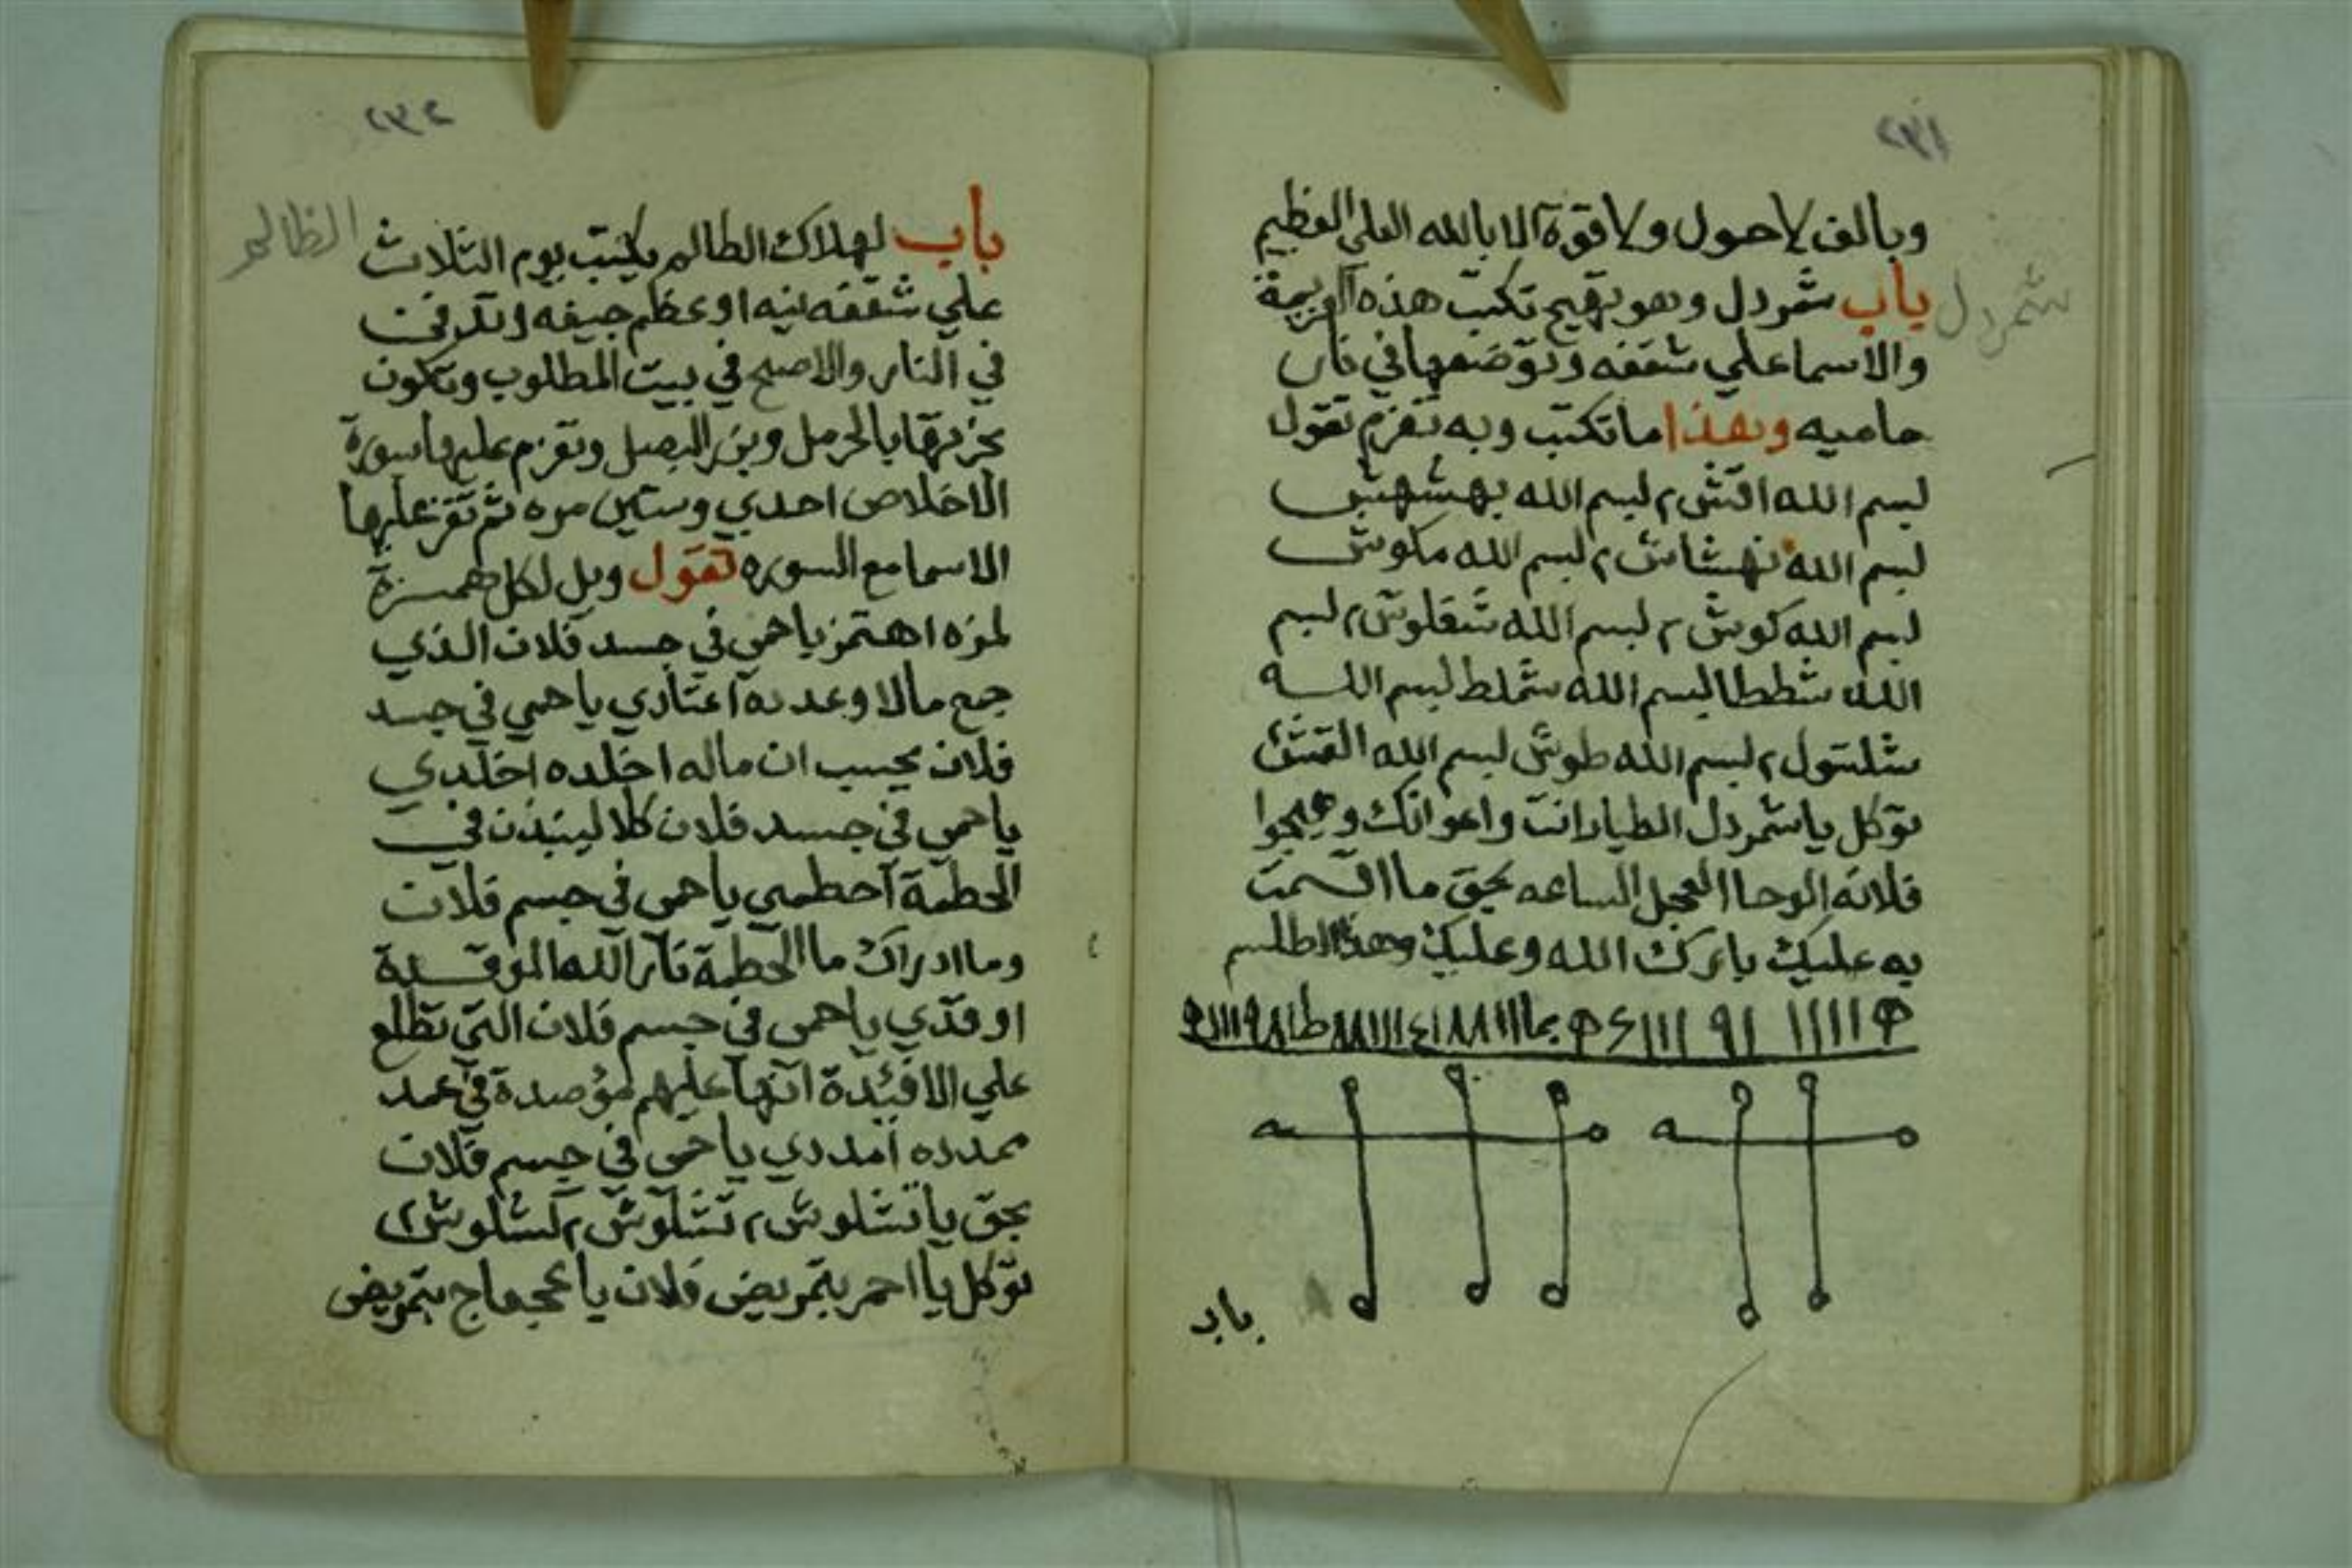 ٢٣١
وبالف لاحول ولاقوة الا بالله العلي العظيم
باب شمردل وهو تهيج تكتب هذه العزيمة
شمردل
والاسما علي شقفه وتوضعها في نار
حاميه وهذا ما تكتب وبه تعزم تقول
بسم الله اقش ٢ بسم الله بهشهش
بسم الله نهشاش ٢ بسم الله مكوش
بسم الله كوش ٢ بسم الله شقلوش ٢ بسم
الله شططا بسم الله شملط بسم الله
بسم الله طوش بسم الله القشش
توكل يا شمردل الطيار انت واعوانك وهيجوا
فلانه الوحا العجل الساعه بحق ما اقسمت
به عليك بارك الله وعليك وهذا الطلسم
باب
٢٣٢
باب لهلاك الظالم يكتب يوم الثلاث
الظالم
علي شقفه نيه او عظم جيفه وتدفن
في النار والاصح في بيت المطلوب وتكون
بخرتها بالحرمل وبزر البصل وتعزم عليها سورة
الاخلاص احدي وستين مره ثم تعزم عليها
الاسما مع السوره تقول ويل لكل همزة
لمزه اهتمز يا حمي في جسد فلان الذي
جمع مالا وعدده اعتادي يا حمي في جسد
فلان يحسب ان ماله اخلده اخلدي
يا حمي في جسد فلان كلا لينبذن في
الحطمة احطمي يا حمي في جسم فلان
وما ادراك ما الحطمة نار الله الموقدة
اوقدي يا حمي في جسم فلان التي تطلع
علي الافئدة انها عليهم مؤصدة في عمد
ممدده امددي يا حمي في جسم فلان
بحق يا تشلوش ٢ نشلوش ٢ كشلوش ٢
توكل يا احمر بتمريض فلان يا عجعاج بتمريض